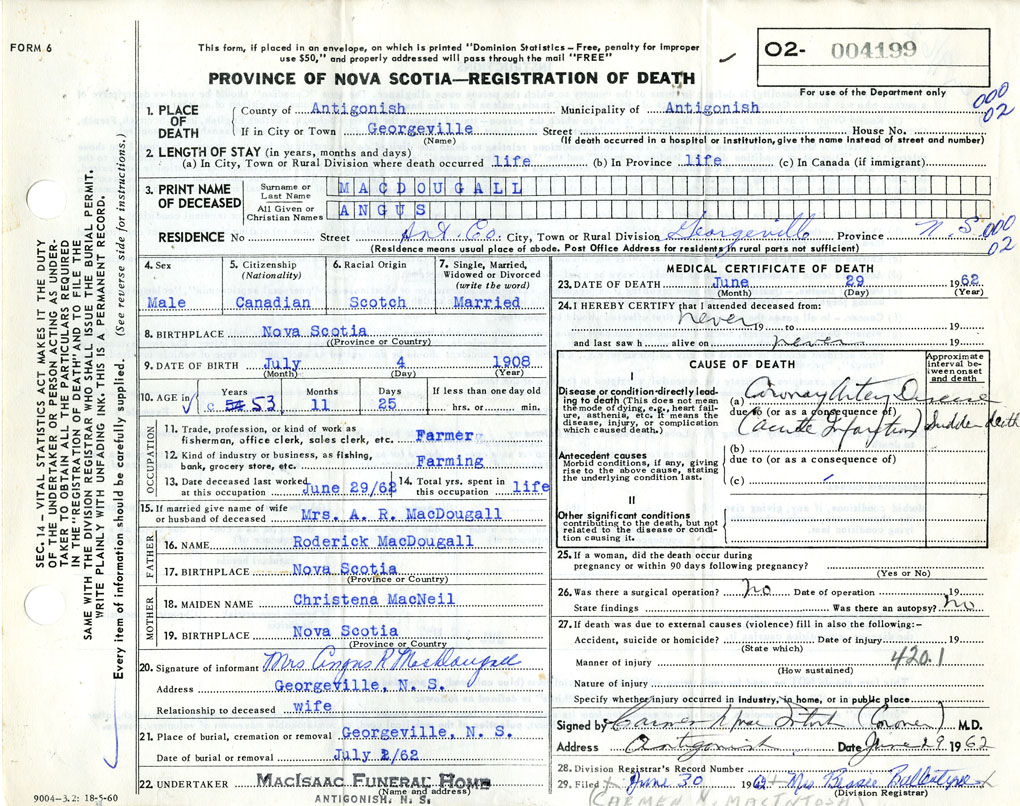 FORM 6
This form, if placed in an envelope, on which is printed "Dominion Statistics — Free, penalty for improper
use $50," and properly addressed will pass through the mail "FREE"
PROVINCE OF NOVA SCOTIA—REGISTRATION OF DEATH
02- 004199
For use of the Department only
000
02
1. PLACE OF DEATH
County of Antigonish Municipality of Antigonish
If in City or Town Georgeville Street House No.
(Name) (If death occurred in a hospital or institution, give the name instead of street and number)
2. LENGTH OF STAY (in years, months and days)
(a) In City, Town or Rural Division where death occurred life (b) In Province life (c) In Canada (if immigrant)
3. PRINT NAME OF DECEASED
Surname or Last Name MACDOUGALL
All Given or Christian Names ANGUS
RESIDENCE No Street Ant. Co. City, Town or Rural Division Georgeville Province N.S.
000
02
(Residence means usual place of abode. Post Office Address for residents in rural parts not sufficient)
4. Sex
Male
5. Citizenship
(Nationality)
Canadian
6. Racial Origin
Scotch
7. Single, Married,
Widowed or Divorced
(write the word)
Married
8. BIRTHPLACE Nova Scotia
(Province or Country)
9. DATE OF BIRTH July 4 1908
(Month) (Day) (Year)
10. AGE in
Years Months Days If less than one day old
c 54 53 11 25 hrs. or min.
OCCUPATION
11. Trade, profession, or kind of work as
fisherman, office clerk, sales clerk, etc. Farmer
12. Kind of industry or business, as fishing,
bank, grocery store, etc. Farming
13. Date deceased last worked
at this occupation June 29/62
14. Total yrs. spent in
this occupation life
15. If married give name of wife
or husband of deceased Mrs. A. R. MacDougall
FATHER
16. NAME Roderick MacDougall
17. BIRTHPLACE Nova Scotia
(Province or Country)
MOTHER
18. MAIDEN NAME Christena MacNeil
19. BIRTHPLACE Nova Scotia
(Province or Country)
20. Signature of informant Mrs Angus R MacDougall
Address Georgeville, N. S.
Relationship to deceased wife
21. Place of burial, cremation or removal Georgeville, N. S.
Date of burial or removal July 2/62
22. UNDERTAKER MACISAAC FUNERAL HOME
(Name and address)
ANTIGONISH, N. S.
9004-3.2: 18-5-60
MEDICAL CERTIFICATE OF DEATH
23. DATE OF DEATH June 29 1962
(Month) (Day) (Year)
24. I HEREBY CERTIFY that I attended deceased from:
never 19 to 19
and last saw h alive on never 19
CAUSE OF DEATH
Approximate
interval be-
tween onset
and death
I
Disease or condition directly lead-
ing to death (This does not mean
the mode of dying, e.g., heart fail-
ure, asthenia, etc. It means the
disease, injury, or complication
which caused death.)
(a) Coronary Artery Disease
due to (or as a consequence of)
(Acute Infarction) Sudden death
Antecedent causes
Morbid conditions, if any, giving
rise to the above cause, stating
the underlying condition last.
(b)
due to (or as a consequence of)
(c)
II
Other significant conditions
contributing to the death, but not
related to the disease or condi-
tion causing it.
25. If a woman, did the death occur during
pregnancy or within 90 days following pregnancy?
(Yes or No)
26. Was there a surgical operation? no Date of operation 19
State findings Was there an autopsy? no
27. If death was due to external causes (violence) fill in also the following:—
Accident, suicide or homicide? Date of injury 19
(State which)
Manner of injury 420.1
(How sustained)
Nature of injury
Specify whether injury occurred in industry, in home, or in public place
Signed by Carmen N MacIntosh (Coroner) M.D.
Address Antigonish Date June 29 1962
28. Division Registrar's Record Number
29. Filed June 30 1962 Mrs Ballantyne
(Division Registrar)
(CARMEN N. MACINTOSH)
SEC. 14 – VITAL STATISTICS ACT MAKES IT THE DUTY
OF THE UNDERTAKER OR PERSON ACTING AS UNDER-
TAKER TO OBTAIN ALL THE PARTICULARS REQUIRED
IN THE "REGISTRATION OF DEATH" AND TO FILE THE
SAME WITH THE DIVISION REGISTRAR WHO SHALL ISSUE THE BURIAL PERMIT.
WRITE PLAINLY WITH UNFADING INK. THIS IS A PERMANENT RECORD.
Every item of information should be carefully supplied. (See reverse side for instructions.)